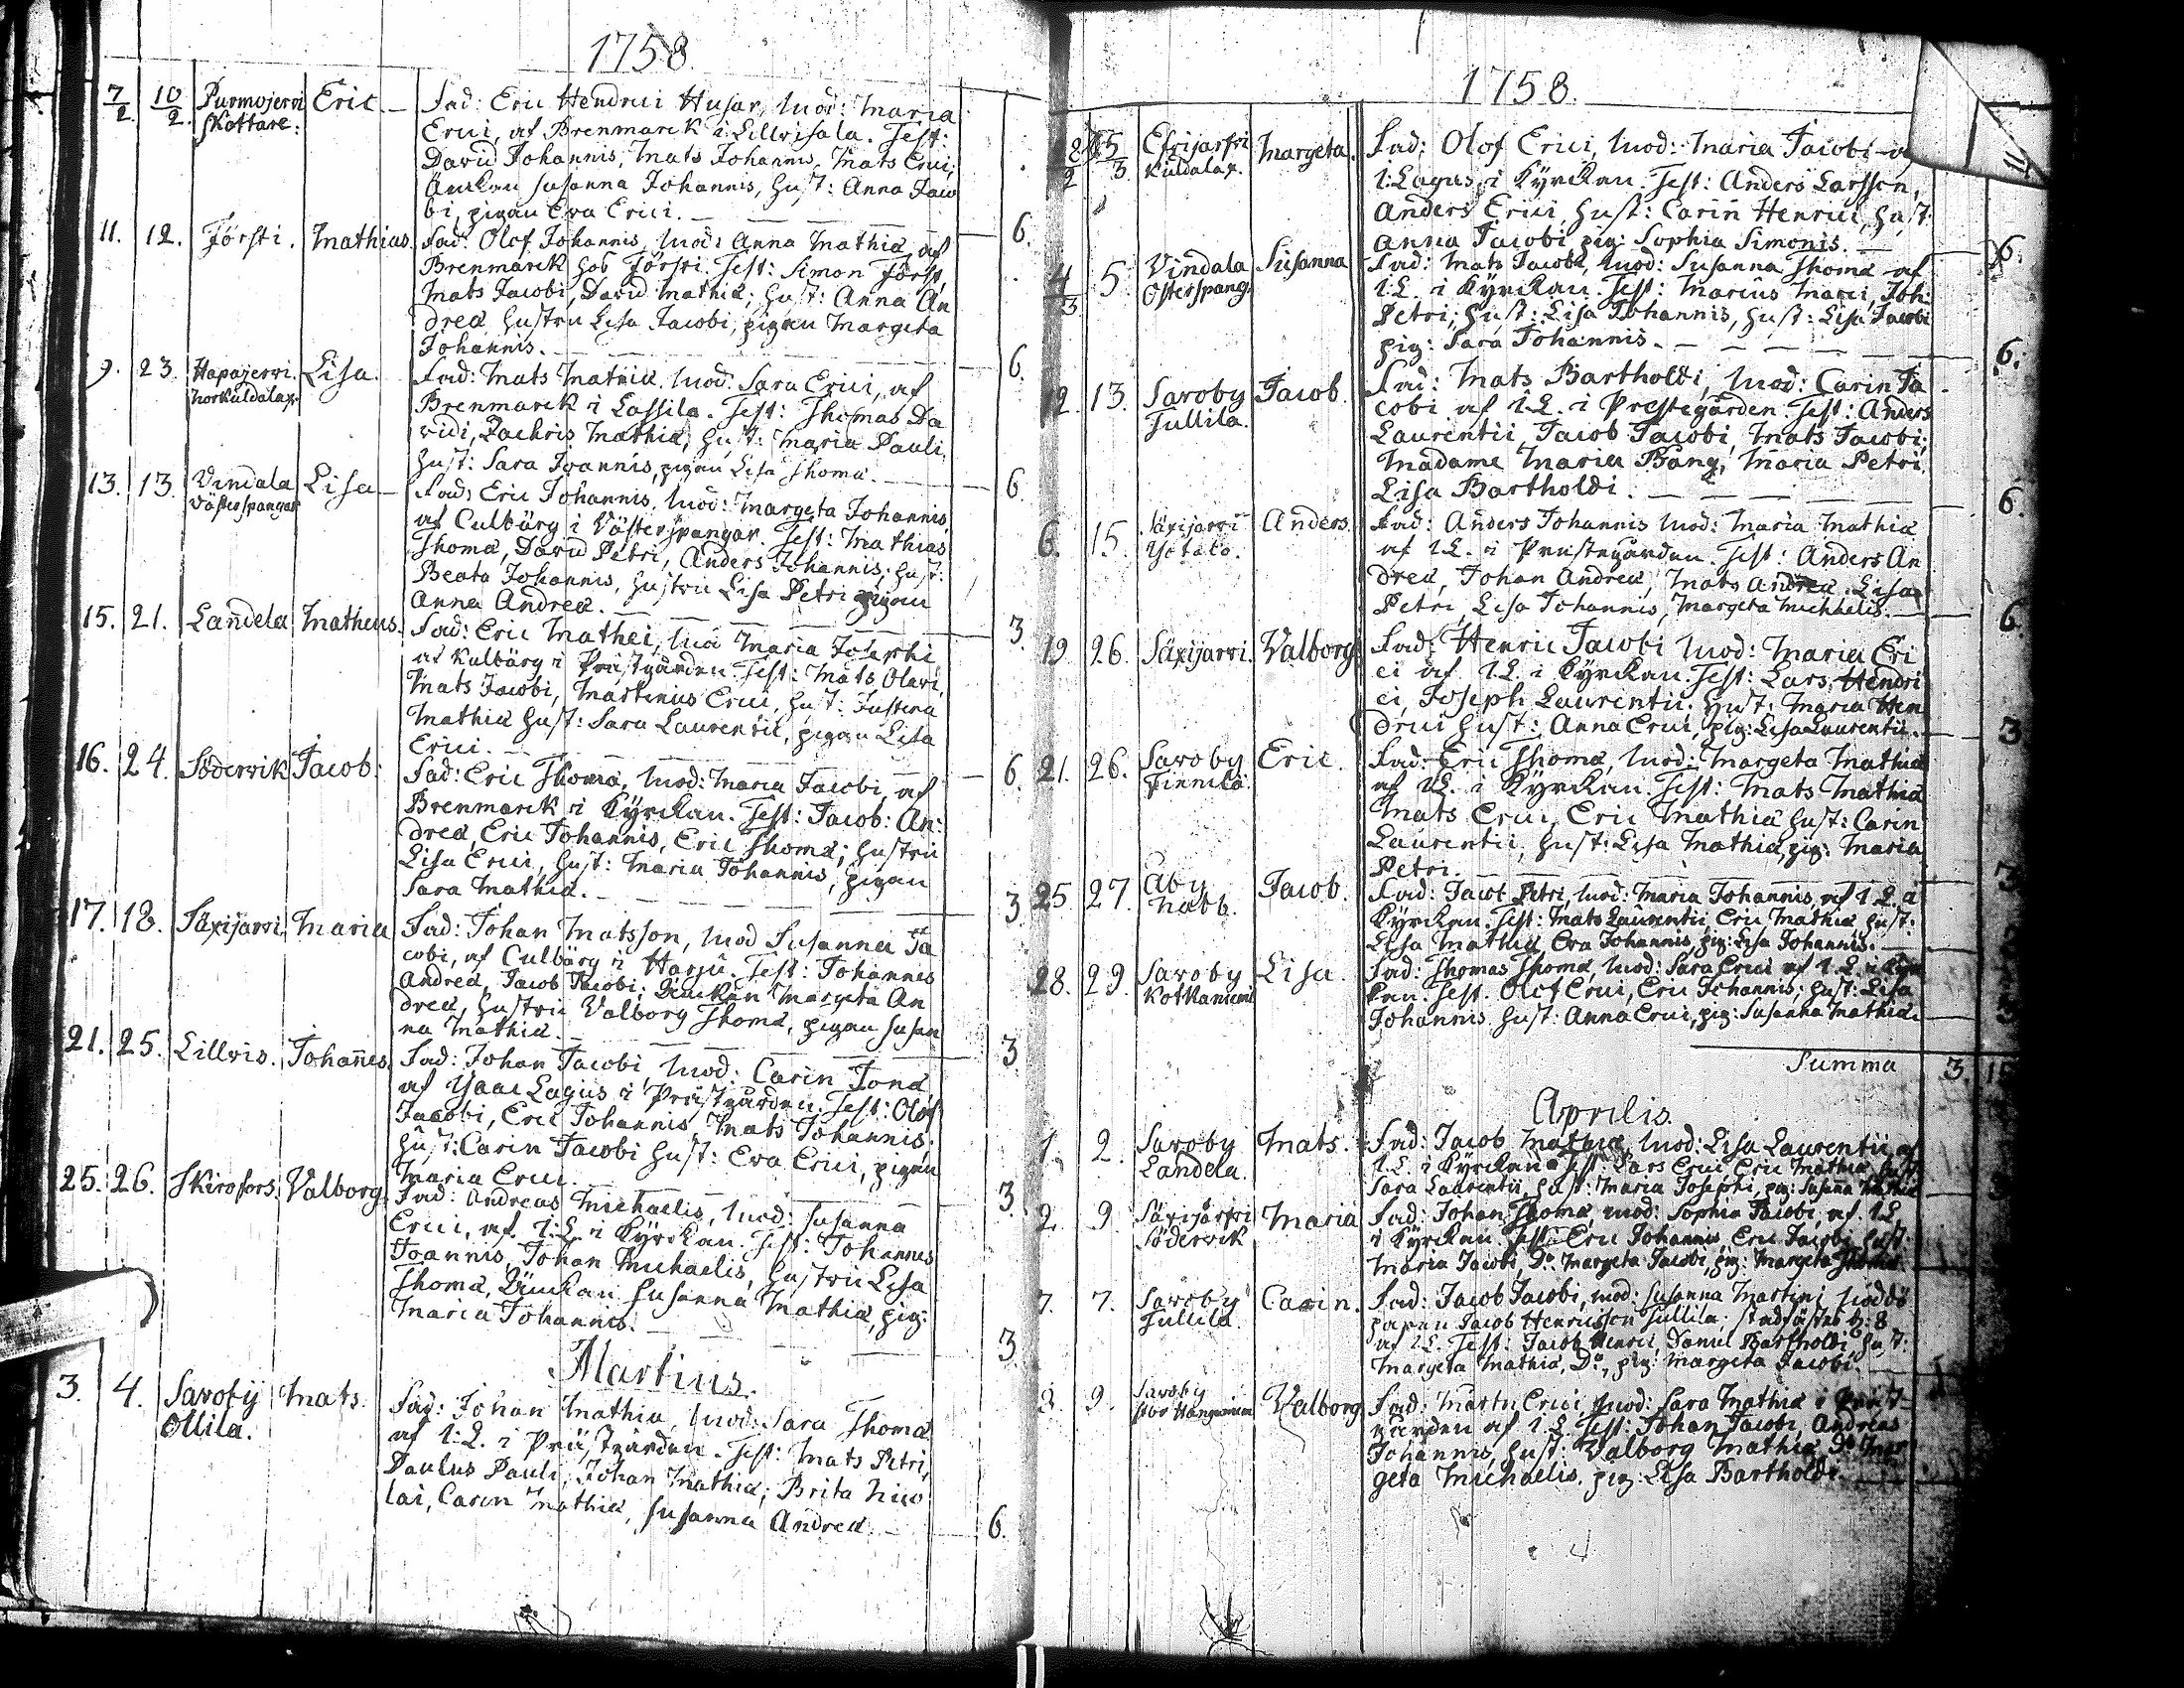 1758.
7/2 10/2 Purmojerri Eric — Fad: Eric Hendrici Husar, Mod: Maria
Skattare: Erici, af Brenmarck i Lillvisala. Test:
David Johannis, Mats Johannis, Mats Erici,
Änckan Susanna Johannis, Hust: Anna Jaco
bi, pigan Eva Erici. — 6.
11. 12. Försti. Mathias. Fad: Olof Johannis, Mod: Anna Mathiæ af
Brenmarck hos Försti. Test: Simon Först,
Mats Jacobi, David Mathiæ; Hust: Anna An
dreæ, Hustru Lisa Jacobi, pigan Margeta
Johannis. — 6
9. 23. Hapajerri. Lisa. Fad: Mats Mathiæ. Mod. Sara Erici, af
Norkuldalax. Brenmarck i Lassila. Test: Thomas Da
vidi, Zachris Mathiæ; Hust: Maria Pauli,
Hust: Sara Joannis, pigan Lisa Thomæ. — 6.
13. 13. Vindala Lisa — Fad: Eric Johannis, Mod: Margeta Johannis
Västerspangar af Culbärg i Västerspangar. Test: Mathias
Thomæ, David Petri, Anders Johannis; Hust:
Beata Johannis, Hustru Lisa Petri pigan
Anna Andreæ. — 3.
15. 21. Landela Matheus. Fad: Eric Mathei, Mod Maria Josephi
af Kulbärg i Prästgården. Test: Mats Olavi,
Mats Jacobi, Martinus Erici, Hust: Justina
Mathiæ Hust: Sara Laurentii, pigan Lisa
Erici. — 6
16. 24. Södervik Jacob: Fad: Eric Thomæ, Mod: Maria Jacobi, af
Brenmarck i Kyrckan. Test: Jacob: An:
dreæ, Eric Johannis, Eric Thomæ; Hustru
Lisa Erici, Hust: Maria Johannis, pigan
Sara Mathiæ. — 3
17. 18. Säxijarri. Maria Fad: Johan Matsson, Mod Susanna Ja
cobi, af Culbärg i Harju. Test: Johannes
Andreæ, Jacob Jacobi; Änckan Margeta An
dreæ, Hustru Valborg Thomæ, pigan Susan
na Mathiæ. — 3
21. 25. Lillvis. Johannes. Fad: Johan Jacobi, Mod: Carin Jonæ
af Isaac Lagus i Prästgården. Test: Olof
Jacobi, Eric Johannis Mats Johannis;
Hust: Carin Jacobi Hust: Eva Erici, pigan
Maria Erici. — 3.
25. 26. Skirofors. Valborg. Fad: Andreas Michaelis, Mod: Susanna
Erici, af I:L. i Kyrckan. Test: Johannes
Joannis, Johan Michaelis, Hustru Lisa
Thomæ, Änckan Susanna Mathiæ, pig:
Maria Johannis. — 3
Martius.
3. 4. Savoby Mats. Fad: Johan Mathiæ, Mod: Sara Thomæ
Ollila. af I:L. i Prästgården. Test: Mats Petri,
Paulus Pauli, Johan Mathiæ; Brita Nico
lai, Carin Mathiæ, Susanna Andreæ — 6.
1758.
5/3 Esxijarfri Margeta. Fad: Olof Erici, Mod: Maria Jacobi
Kuldalax. I:Lagus i Kyrckan. Test: Anders Larsson,
Anders Erici, Hust: Carin Henrici, Hust:
Anna Jacobi, pig: Sophia Simonis. — 6.
4/3 5. Vindala Susanna Fad: Mats Jacobi, Mod: Susanna Thomæ af
Österspang. I:L. i Kyrckan. Test: Marcus Marci, Joh:
Petri; Hust: Lisa Johannis, Hust: Lisa Jacobi
pig: Sara Johannis. — 6.
13. Savoby Jacob. Fad: Mats Bartholdi, Mod: Carin Ja
Jullila. cobi af I:L. i Prestegården. Test: Anders
Laurentii, Jacob Jacobi, Mats Jacobi;
Madame Maria Bång, Maria Petri,
Lisa Bartholdi. — 6.
6. 15. Säxijarri Anders. Fad: Anders Johannis Mod: Maria Mathiæ
Ystalo. af I:L. i Prestegården. Test: Anders An
dreæ, Johan Andreæ, Mats Andreæ. Lisa
Petri, Lisa Johannis, Margeta Michaelis. — 6.
19. 26. Säxijarri. Valborg. Fad: Henric Jacobi Mod: Maria Eri
ci af I:L. i Kyrckan. Test: Lars Hendri
ci, Joseph Laurentii. Hust: Maria Hen
drici Hust: Anna Erici, pig: Lisa Laurentii. — 3
21. 26. Savoby Eric. Fad: Eric Thomæ, Mod: Margeta Mathiæ
Finnilä. af I:L. i Kyrckan. Test: Mats Mathiæ
Mats Erici, Eric Mathiæ Hust: Carin
Laurentii, Hust: Lisa Mathiæ, pig: Maria
Petri. — 3
25 27. Åby Jacob. Fad: Jacob Petri, Mod: Maria Johannis, af I:L. i
Nabb. Kyrckan. Test: Mats Laurentii, Eric Mathiæ, Hust:
Lisa Mathiæ, Eva Johannis, pig: Lisa Johannis. —
28. 29. Savoby Lisa. Fad: Thomas Thomæ, Mod: Sara Erici af I:L. i Kyrc
Kotkaniemi kan. Test. Olof Erici, Eric Johannis; Hust: Lisa
Johannis Hust: Anna Erici, pig: Susanna Mathiæ. 3
Summa 3. 15
Aprilis.
1. 2. Savoby Mats. Fad: Jacob Mathiæ, Mod: Lisa Laurentii af
Landela. I:L. i Kyrckan. Test: Lars Erici Eric Mathiæ, Hust:
Sara Laurentii, Hust: Maria Josephi, pig: Susanna Mathiæ
2. 9. Säxijärfri Maria Fad: Johan Thomæ, Mod: Sophia Jacobi, af I:L
Södervik i Kyrckan. Test: Eric Johannis, Eric Jacobi, Hust:
Maria Jacobi, D:o Margeta Jacobi, pig: Margeta Thomæ
7. 7. Savoby Carin. Fad: Jacob Jacobi, Mod: Susanna Martini
Jullila. Jacob Henricsson Jullila.
af I:L. Test: Jacob Henrici, Daniel Bartholdi, Hust:
Margeta Mathiæ, D:o, pig: Margeta Jacobi.
8. 9. Savoby Valborg Fad: Martin Erici, Mod: Sara Mathiæ i Präst-
gården af I:L. Test: Johan Jacobi, Andreas
Johannis, Hust: Valborg Mathiæ, D:o Mar
geta Michaelis. pig: Lisa Bartholdi.